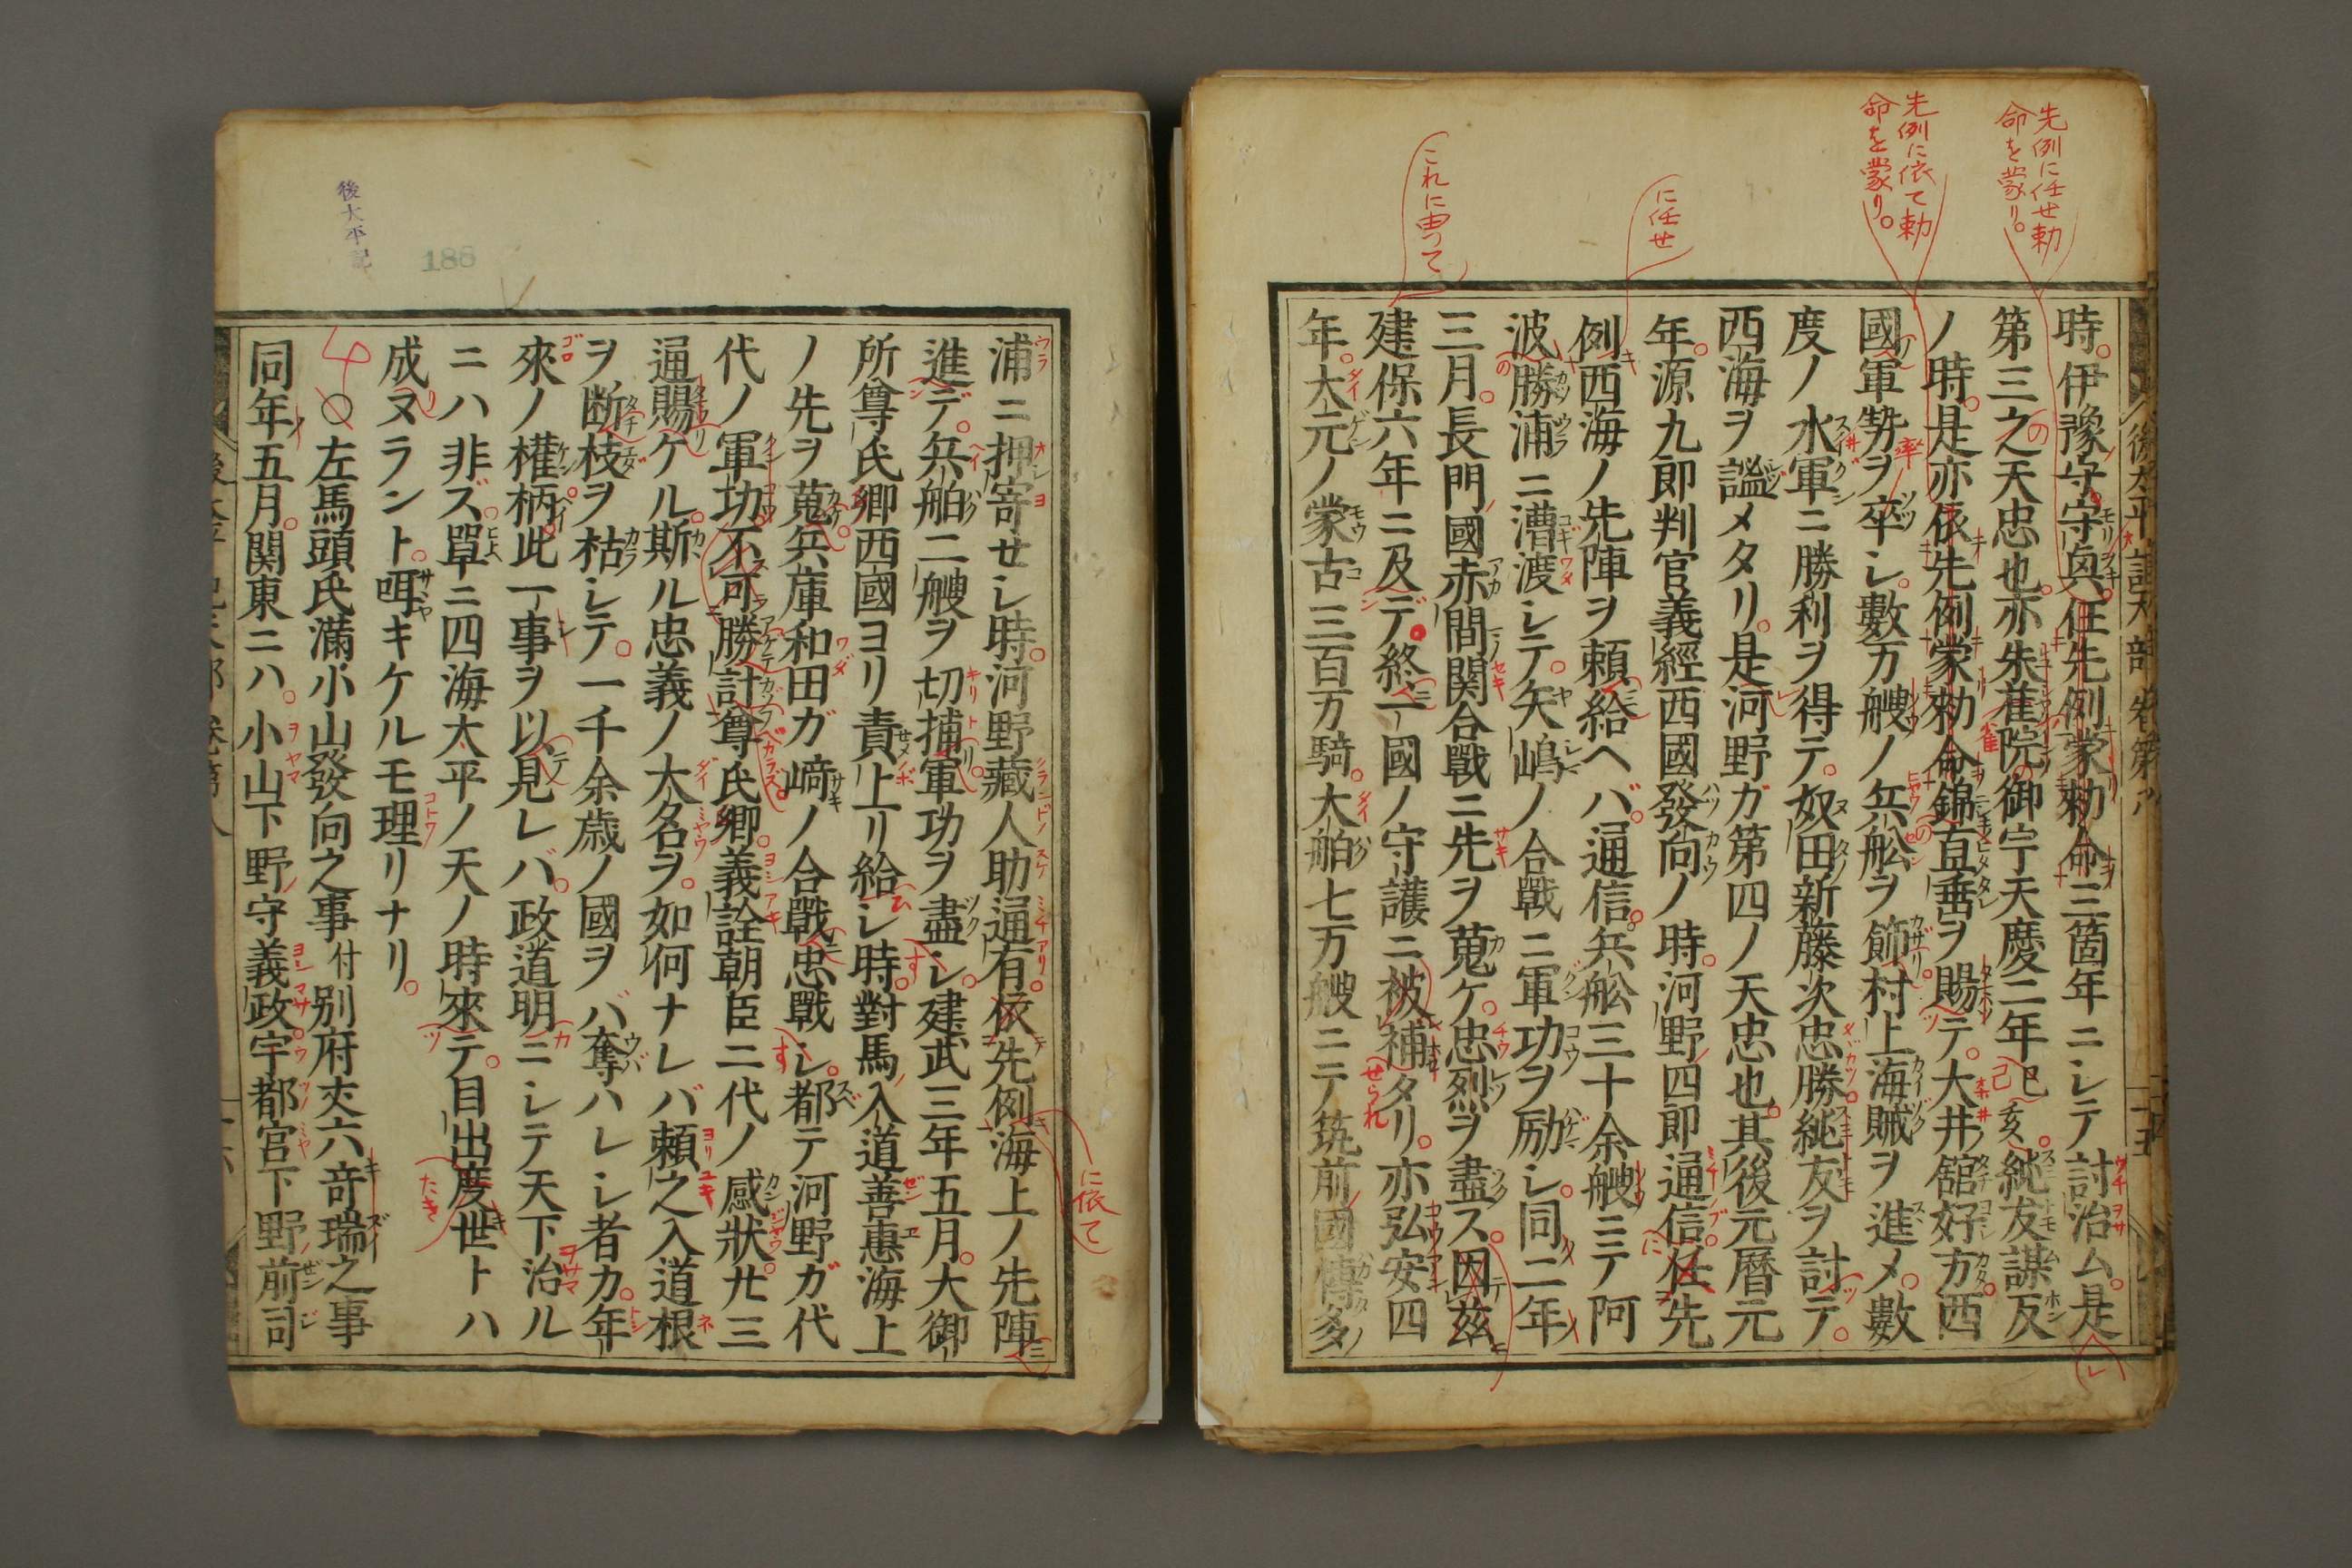 先例に任せ勅
命を蒙り。
先例に依て勅
命を蒙り。
に任せ
これに由つて
時。伊豫守守眞任先例蒙勅命三箇年ニシテ討治ム。是
第三之天忠也。亦朱雀院御宇天慶二年己亥。純友謀反
ノ時。是亦依先例蒙勅命錦直垂ヲ賜テ。大井舘好方。西
國軍勢ヲ卒シ。數万艘ノ兵舩ヲ餝村上海賊ヲ進メ。數
度ノ水軍ニ勝利ヲ得テ。奴田新藤次忠勝純友ヲ討テ。
西海ヲ謐メタリ。是河野ガ第四ノ天忠也。其後元暦元
年。源九郎判官義經西國發向ノ時。河野四郎通信任先
例西海ノ先陣ヲ頼給ヘバ。通信。兵舩三十余艘ニテ阿
波勝浦ニ漕渡シテ。矢嶋ノ合戰ニ軍功ヲ励シ。同二年
三月。長門國赤間関合戰ニ先ヲ蒐ケ。忠烈ヲ盡ス。因茲
建保六年ニ及デ。終一國ノ守護ニ被補タリ。亦弘安四
年。大元ノ蒙古三百万騎。大舶七万艘ニテ筑前國博多ノ
後太平記
188
に依て
浦ニ押寄セシ時。河野藏人助通有。依先例海上ノ先陣
進デ。兵舶二艘ヲ切捕軍功ヲ盡シ。建武三年五月。大御
所尊氏卿西國ヨリ責上リ給シ時。對馬入道善惠海上
ノ先ヲ蒐。兵庫和田ガ﨑ノ合戰忠戰シ。都テ河野ガ代
代ノ軍功不可勝計尊氏卿。義詮朝臣二代ノ感狀。廿三
通賜ケル。斯ル忠義ノ大名ヲ。如何ナレバ頼之入道根
ヲ断枝ヲ枯シテ。一千余歳ノ國ヲバ奪ハレシ者カ。年
來ノ權柄。此一事ヲ以見レバ。政道明ニシテ天下治ル
ニハ非ズ。單ニ四海太平ノ天ノ時來テ。目出度世トハ
成ヌラント。咡キケルモ理リナリ。
○左馬頭氏滿小山發向之事付別府夾六竒瑞之事
同年五月。関東ニハ。小山下野守義政。宇都宮下野前司